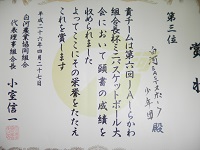 賞状
第三位
殿
貴チームは第六回JAしらかわ
組合長杯ミニバスケットボール大
会において頭書の成績を
収められました
よってここにその栄誉をたたえ
これを賞します
平成二十六年四月二十七日
白河農業協同組合
代表理事組合長
小室信一